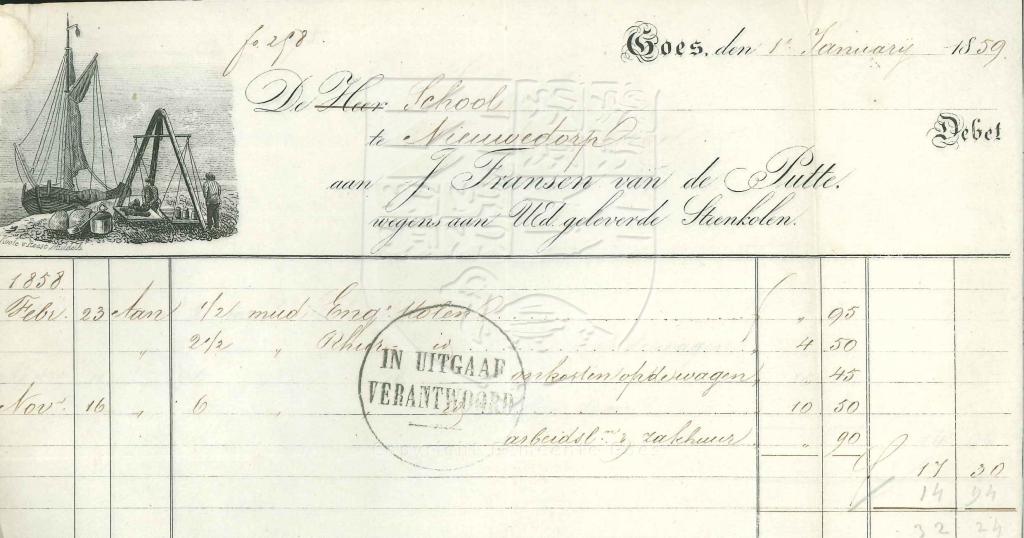 fo. 298.
Goes, den 1e January 1859.
De Heer School
te Nieuwedorp
Debet
aan J. Fransen van de Putte.
wegens aan UEd. geleverde Steenkolen.
1858.
Febr. 23 Aan 1/2 mud Eng. Kolen " 95
" 2 1/2 " Rhur id 4 50
onkosten op de wagen " 45
Novr. 16 " 6 " " id 10 50
arbeidsl. & zakhuur " 90
17 30
14 94
32 24
IN UITGAAF
VERANTWOORD